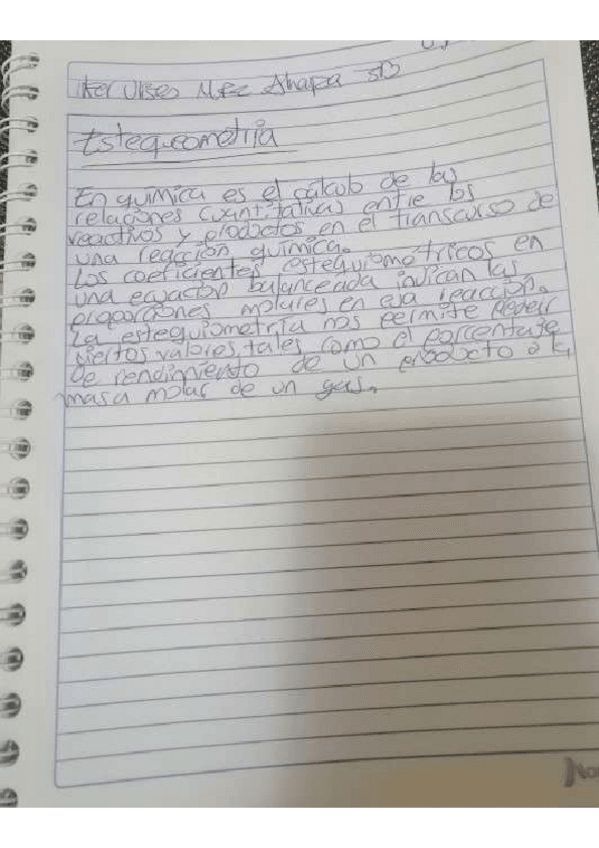 Estequeometria
En química es el cálculo de las
relaciones cuantitativas entre los
reactivos y productos en el transcurso de
una reacción química.
Los coeficientes estequiométricos en
una ecuación balanceada indican las
proporciones molares en esa reacción.
La estequiometria nos permite
ciertos valores, tales como el porcentaje
de rendimiento de un producto o la
masa molar de un gas.